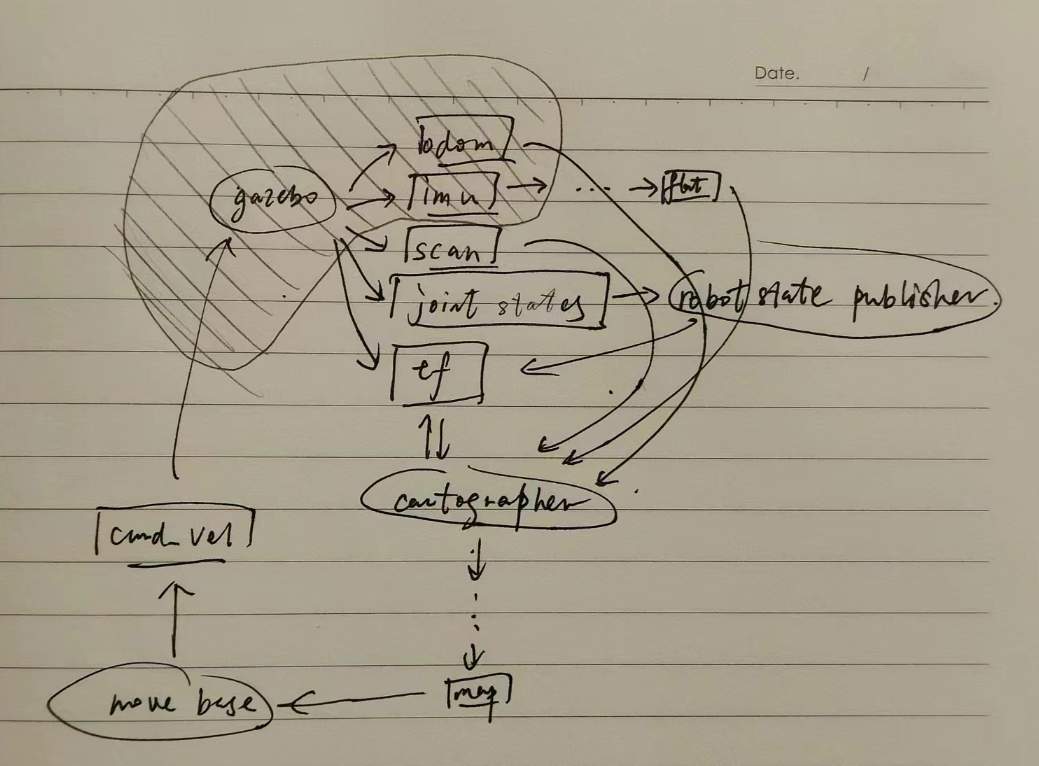 Date. /
odom
gazebo
imu
...
flat
scan
joint states
robot state publisher.
tf
cartographer
cmd_vel
map
move base